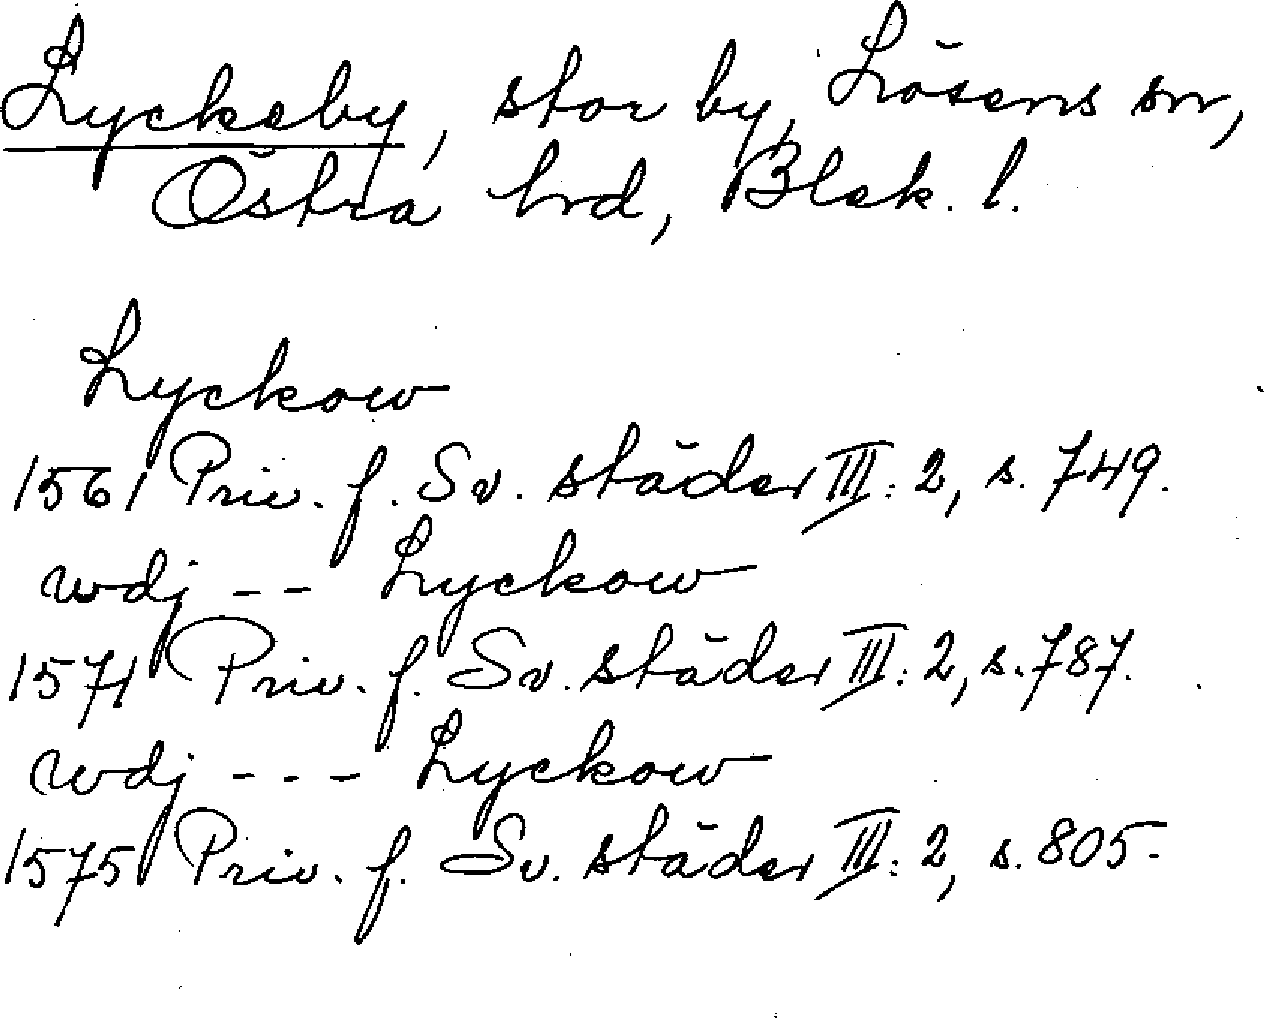 Lyckeby, stor by, Lösens sn,
Östra hrd, Blek. l.
Lyckow
1561 Priv. f. Sv. städer III: 2, s. 749.
wdj -- Lyckow
1571 Priv. f. Sv. städer III: 2, s. 787.
wdj --- Lyckow
1575 Priv. f. Sv. städer III: 2, s. 805.